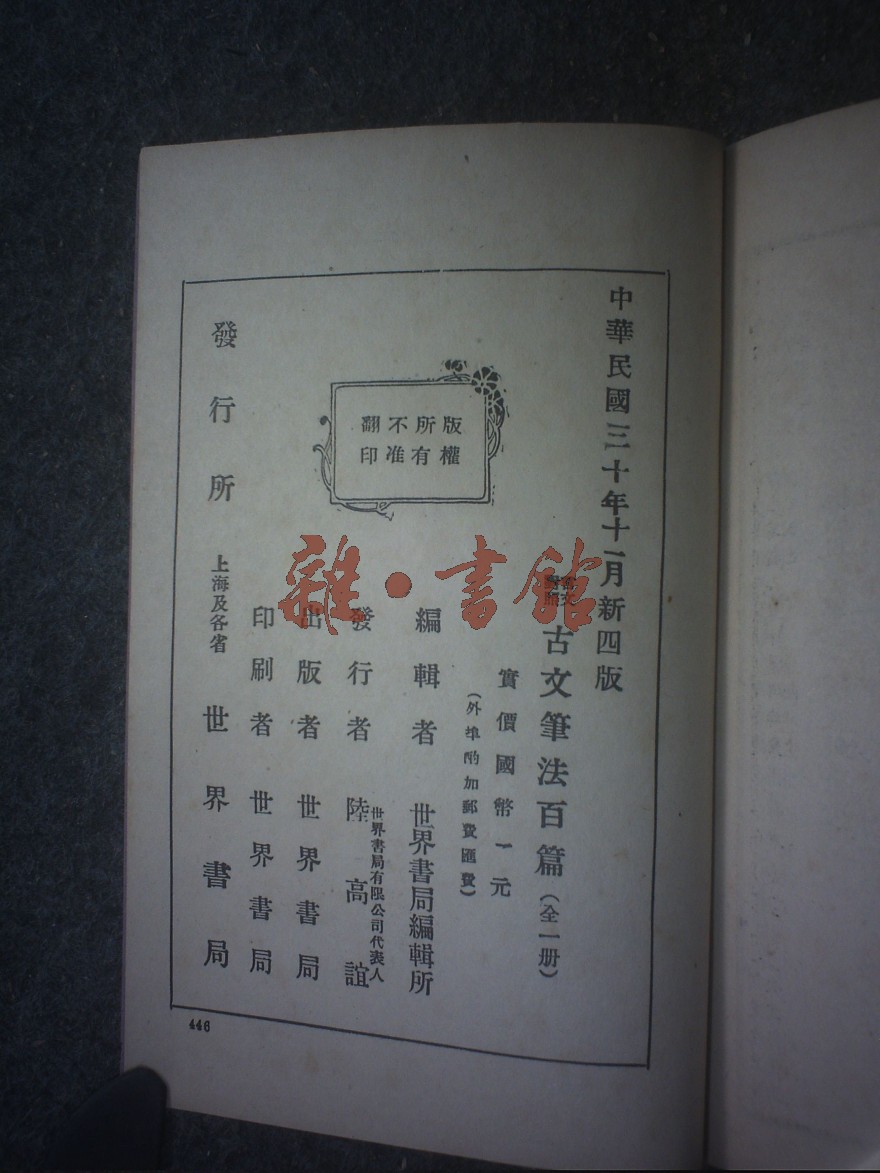 中華民國三十年十一月新四版
古文筆法百篇(全一册)
實價國幣一元
(外埠酌加郵費匯費)
版權
所有
不准
翻印
編輯者 世界書局編輯所
發行者 世界書局有限公司代表人 陸高誼
出版者 世界書局
印刷者 世界書局
發行所 上海及各省 世界書局
446
雜·書館